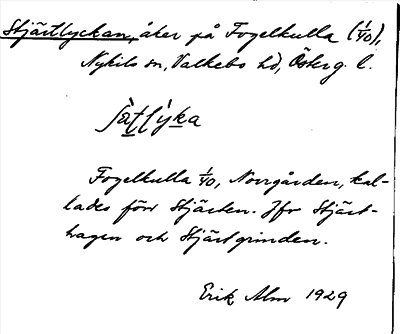 Stjärtlyckan, åker på Fogelkulla (1/40),
Nykils sn, Valkebo hd, Österg. l.
Fogelkulla 1/40, Norrgården, kal-
lades förr Stjärten. Jfr Stjärt-
hagen och Stjärtgrinden.
Erik Alm 1929